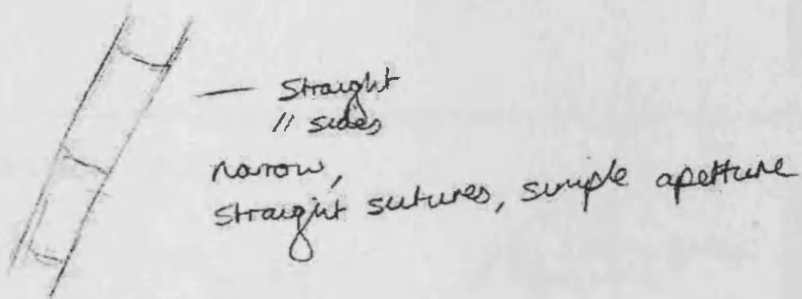 — Straight
// sides
narrow,
straight sutures, simple aperture